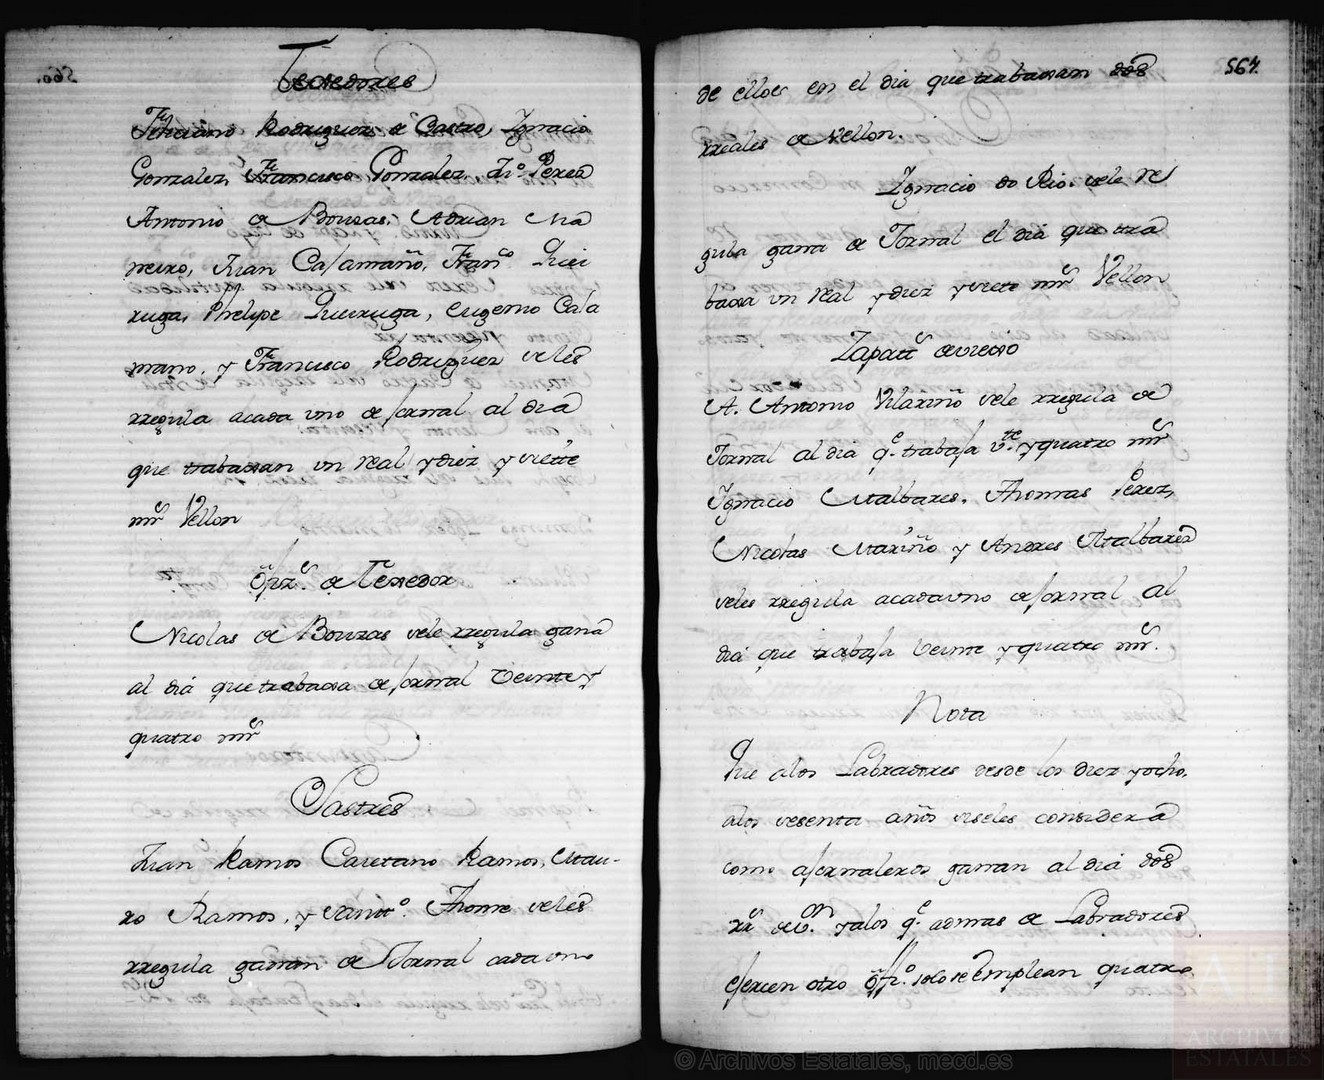 Texedores
Feliciano Rodriguez de Castro, Ignacio
Gonzalez, Francisco Gonzalez, Perez
Antonio de Bouzas, Adrian Ma
neiro, Juan Casamaño, Franco Quei
ruga, Phelipe Queiruga, Eugenio Casa
mano, y Francisco Rodriguez seles
rregula acada uno de jornal al dia
que trabaxan un real y diez y siette
mrs Vellon
ofizs de Texedor
Nicolas de Bouzas sele rregula gana
al dia que trabaxa de jornal Veinte y
quatro mrs
Sastres
Juan Ramos Caietano Ramos, Mau-
ro Ramos, y Thome seles
rregula ganan de Jornal cada uno
564.
de ellos en el dia que trabaxan dos
rreales de Vellon.
Ignacio do Rio. sele re
gula gana de Jornal el dia que tra
baxa un real y diez y siete mrs Vellon
Zapatros de viexo
A. Antonio Vilariño sele rregula de
Jornal al dia qe trabaja vte y quatro mrs
Ignacio Malbares, Thomas Perez,
Nicolas Mariño y Andres Malbares
seles rregula acadauno de jornal al
dia que trabaja Veinte y quatro mrs.
Nota
Que alos Labradores desde los diez yocho,
alos sesenta años seles considera
como ajornaleros ganan al dia dos
rrs de Von yalos qe ademas de Labradores
ejercen otro ofizo solo se Emplean quatro
© Archivos Estatales, mecd.es
ARCHIVOS
ESTATALES